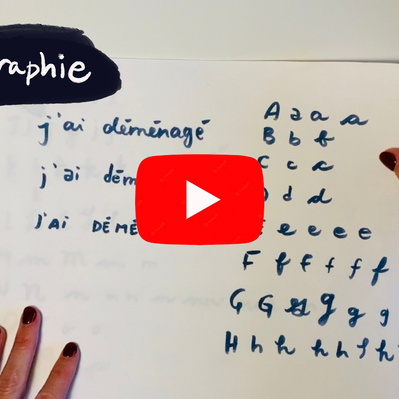 raphie
j'ai déménagé
j'ai dém
J'AI DÉMÉ
A a a a
B b b
C c c
d d
e e e e
F f f f f f
G G g g g g
H h h h h f h